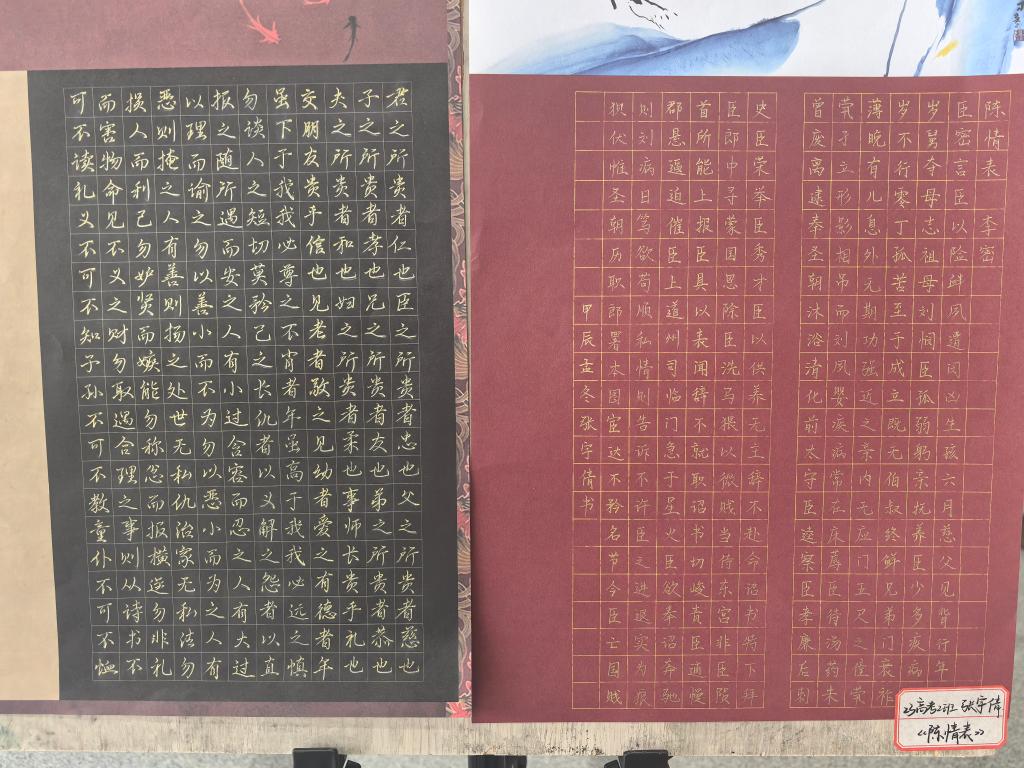 君之所贵者仁也臣之所贵者忠也父之所贵者慈也
子之所贵者孝也兄之所贵者友也弟之所贵者恭也
夫之所贵者和也妇之所贵者柔也事师长贵乎礼也
交朋友贵乎信也见老者敬之见幼者爱之有德者年
虽下于我我必尊之不肖者年虽高于我我必远之慎
勿谈人之短切莫矜己之长仇者以义解之怨者以直
报之随所遇而安之人有小过含容而忍之人有大过
以理而谕之勿以善小而不为勿以恶小而为之人有
恶则掩之人有善则扬之处世无私仇治家无私法勿
损人而利己勿妒贤而嫉能勿称忿而报横逆勿非礼
而害物命见不义之财勿取遇合理之事则从诗书不
可不读礼义不可不知子孙不可不教童仆不可不恤
陈情表 李密
臣密言臣以险衅夙遭因凶生孩六月慈父见行年
岁舅夺母志祖母刘悯臣孤弱躬亲抚养臣少多疾病
岁不行零丁孤苦至于成立既无伯叔终鲜兄弟门衰祚
薄晚有儿息外无期功强近之亲内无应门五尺之僮茕
茕孑立形影相吊而刘夙婴疾病常在床蓐臣侍汤药未
曾废离逮奉圣朝沐浴清化前太守臣逵察臣孝廉后刺
史臣荣举臣秀才臣以供养无主辞不赴命诏书特下拜
臣郎中寻蒙国恩除臣洗马猥以微贱当侍东宫非臣陨
首所能上报臣具以表闻辞不就职诏书切峻责臣逋慢
郡悬逼迫催臣上道州司临门急于星火臣欲奉诏奔驰
则刘病日笃欲苟顺私情则告诉不许臣之进退实为狼
狈伏惟圣朝历职郎署本图宦达不矜名节今臣亡国贱
甲辰冬张宇倩书
23高考2班 张宇倩
《陈情表》